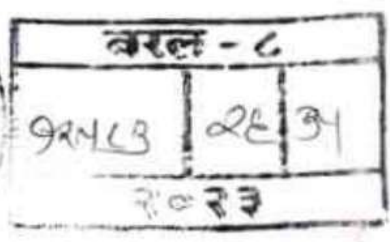 बरल - ८
१२५८३ २६ ३५
२०२३